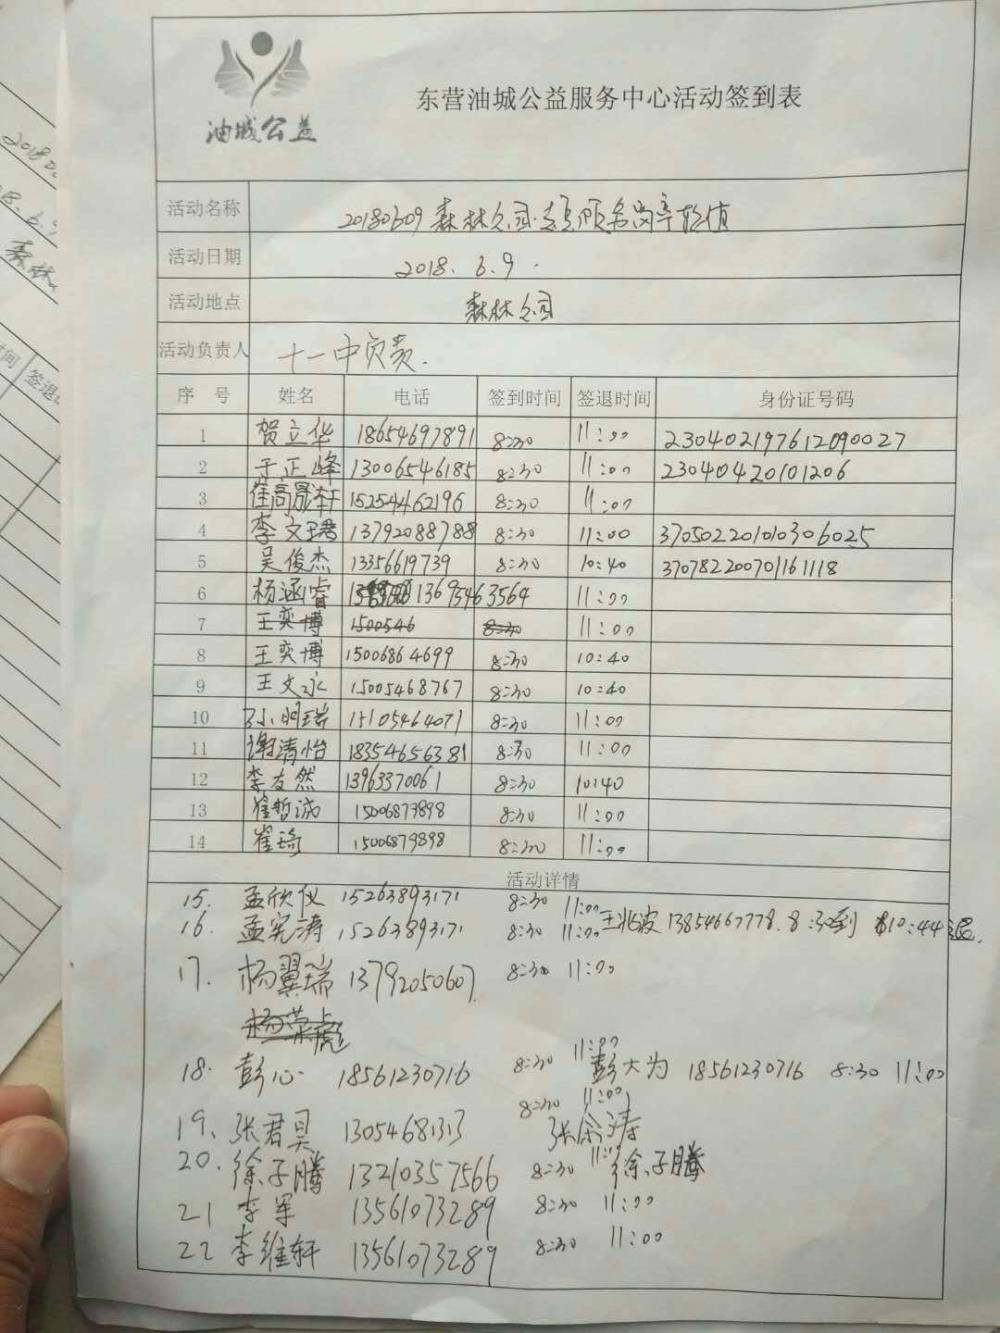 油城公益
东营油城公益服务中心活动签到表
活动名称 20180609 森林公园
活动日期 2018.6.9.
活动地点 森林公园
活动负责人 十一中负责.
序号 姓名 电话 签到时间 签退时间 身份证号码
1 贺立华 18654697891 8:30 11:00 230402197612090027
2 于正峰 13006546185 8:30 11:00 23040420101206
3 崔高晟轩 15254462196 8:30 11:00
4 李文珺 13792088788 8:30 11:00 370502201010306025
5 吴俊杰 13356619739 8:30 10:40 370782200701161118
6 杨涵睿 13695463564 11:00
7 王奕博 1500546 8:30 11:00
8 王奕博 15006864699 8:30 10:40
9 王文永 15005468767 8:30 10:40
10 孙明瑞 15105464071 8:30 11:00
11 谢清怡 18354656381 8:30 11:00
12 李友然 13963370061 8:30 10:40
13 崔哲诚 15006879898 8:30 11:00
14 崔琦 15006879898 8:30 11:00
活动详情
15. 孟欣仪 15263893171 8:30 11:00
16. 孟宪涛 15263893171 8:30 11:00 王兆波 13854667778. 8:30到 10:44退.
17. 杨翼瑞 13792050607. 8:30 11:00
杨荣彪
18. 彭心 18561230716 8:30 11:00 彭大为 18561230716 8:30 11:00
19、张君昊 13054681313 8:30 11:00 张余涛
20. 徐子腾 13210357566 8:30 徐子腾
21 李军 13561073289 8:30 11:00
22 李维轩 13561073289 8:30 11:00
2018.6.9
森林
签退